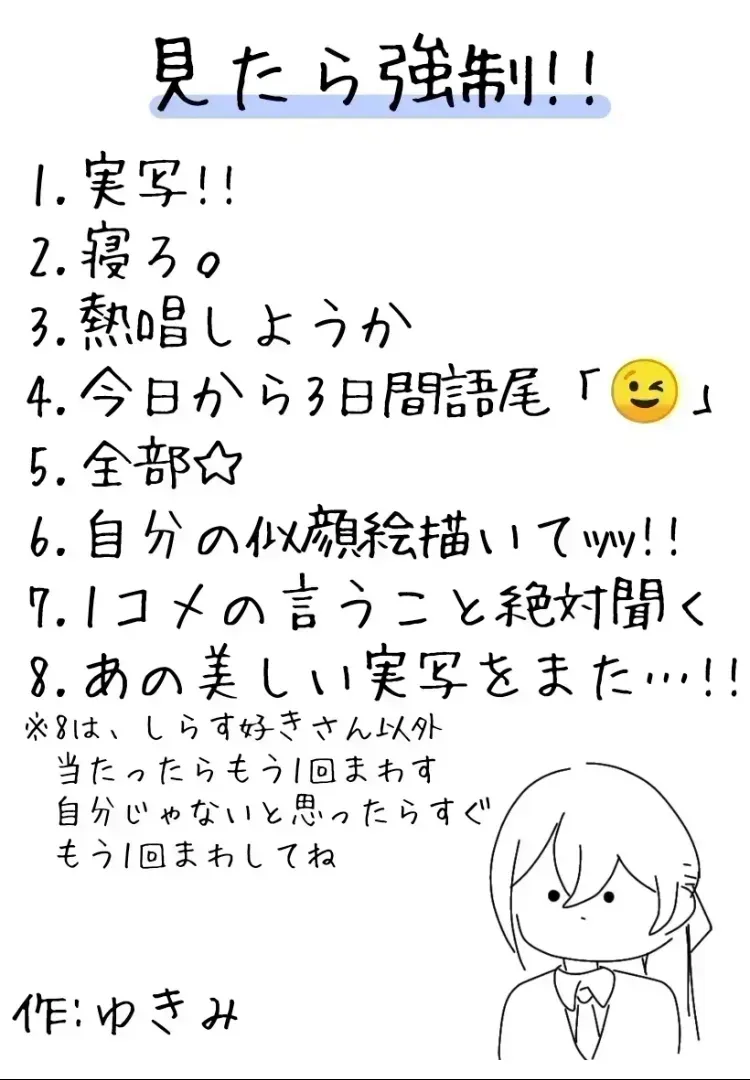 見たら強制!!
1.実写!!
2.寝ろ。
3.熱唱しようか
4.今日から3日間語尾「😉」
5.全部☆
6.自分の似顔絵描いてッッ!!
7.1コメの言うこと絶対聞く
8.あの美しい実写をまた…!!
※8は、しらす好きさん以外
当たったらもう1回まわす
自分じゃないと思ったらすぐ
もう1回まわしてね
作:ゆきみ